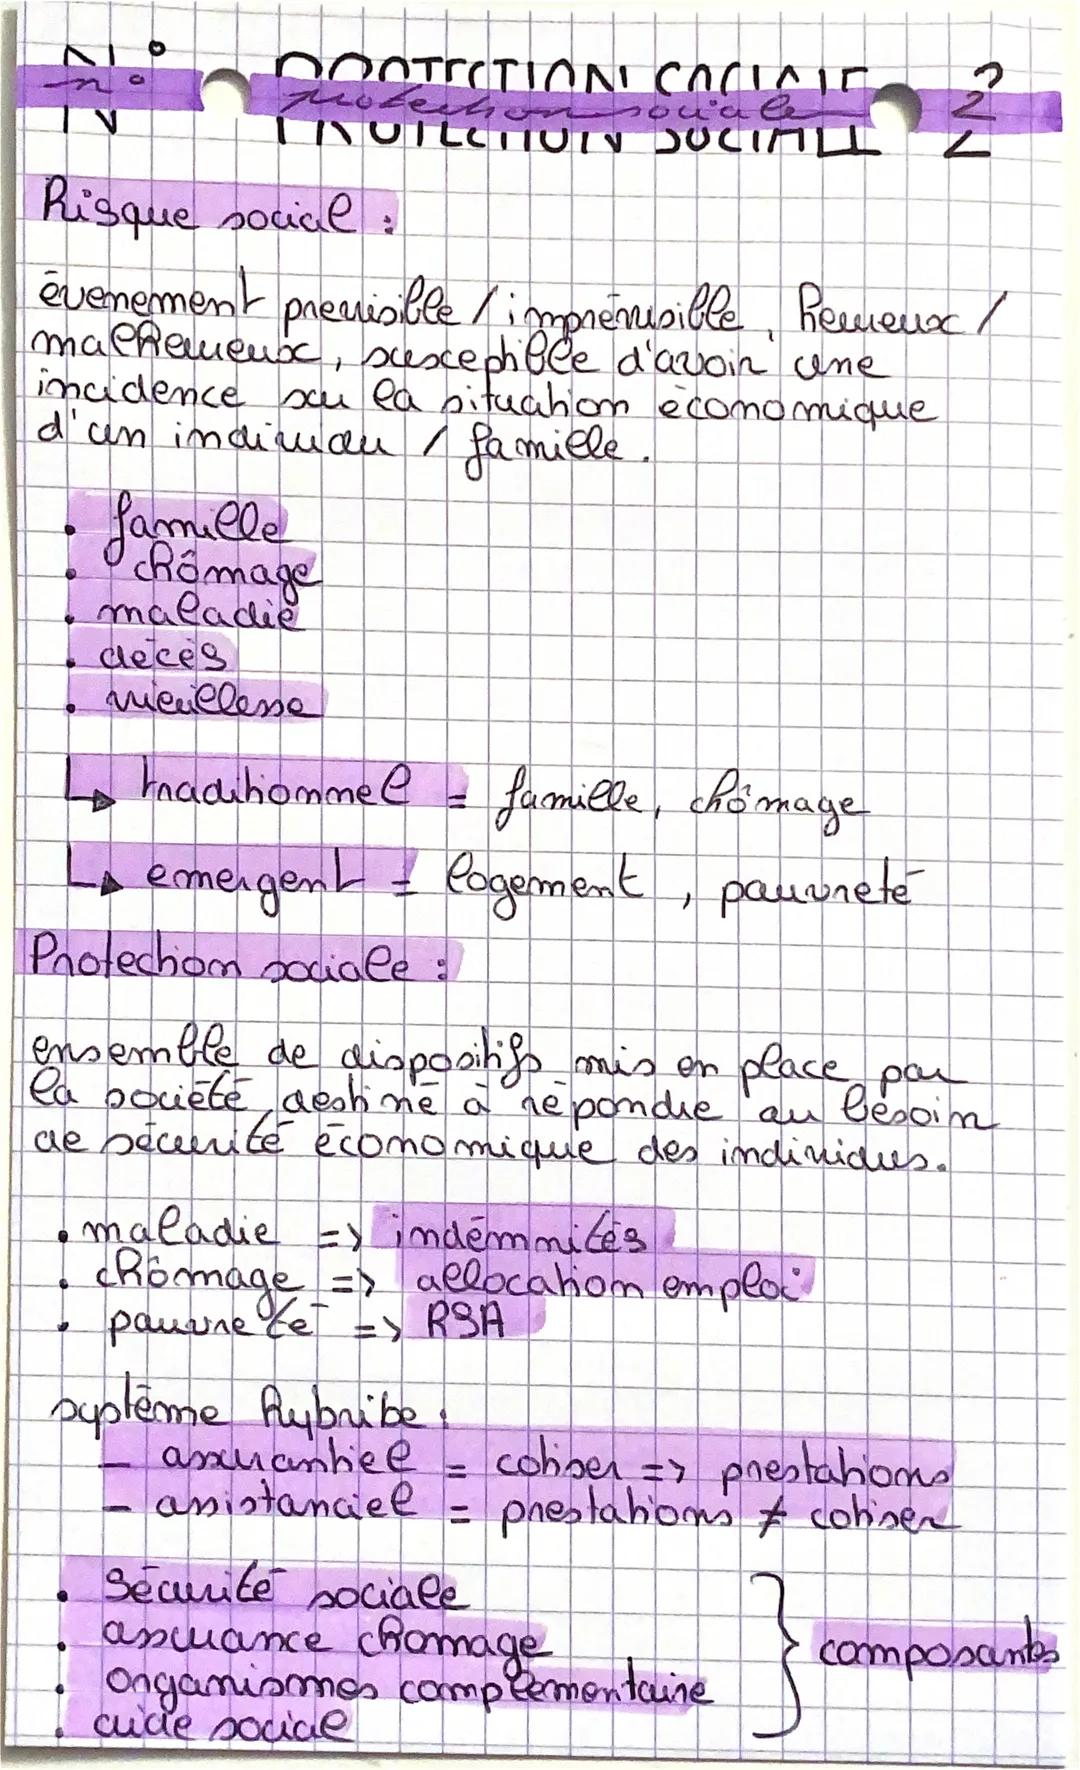 N° PROTECTION SOCIALE 2
n° protection sociale 2
Risque social :
évenement previsible / imprévisible, heureux /
malheureux, susceptible d'avoir une
incidence sur la situation économique
d'un individu / famille.
• famille
• chômage
• maladie
• décès
• vieillesse
↳ traditionnel = famille, chômage
↳ emergent = logement, pauvreté
Protection sociale :
ensemble de dispositifs mis en place par
la société, destiné à répondre au besoin
de sécurité économique des individus.
• maladie => indémnités
• chômage => allocation emploi
• pauvreté => RSA
système hybribe :
- assurantiel = cotiser => prestations
- assistanciel = prestations ≠ cotiser
• Sécurité sociale
• assurance chomage
• organismes complementaire
• aide sociale
} composants